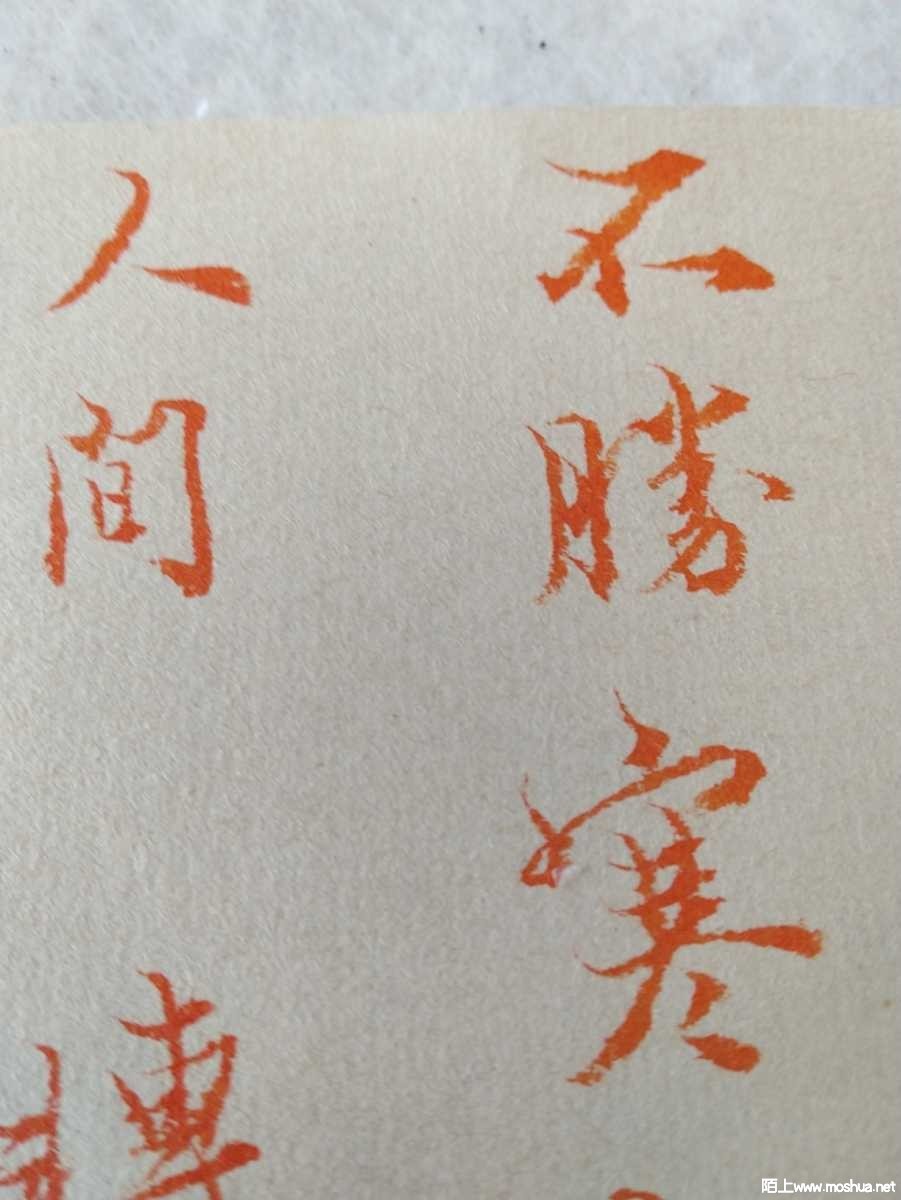 不勝寒
人間
轉
陌上www.moshua.net